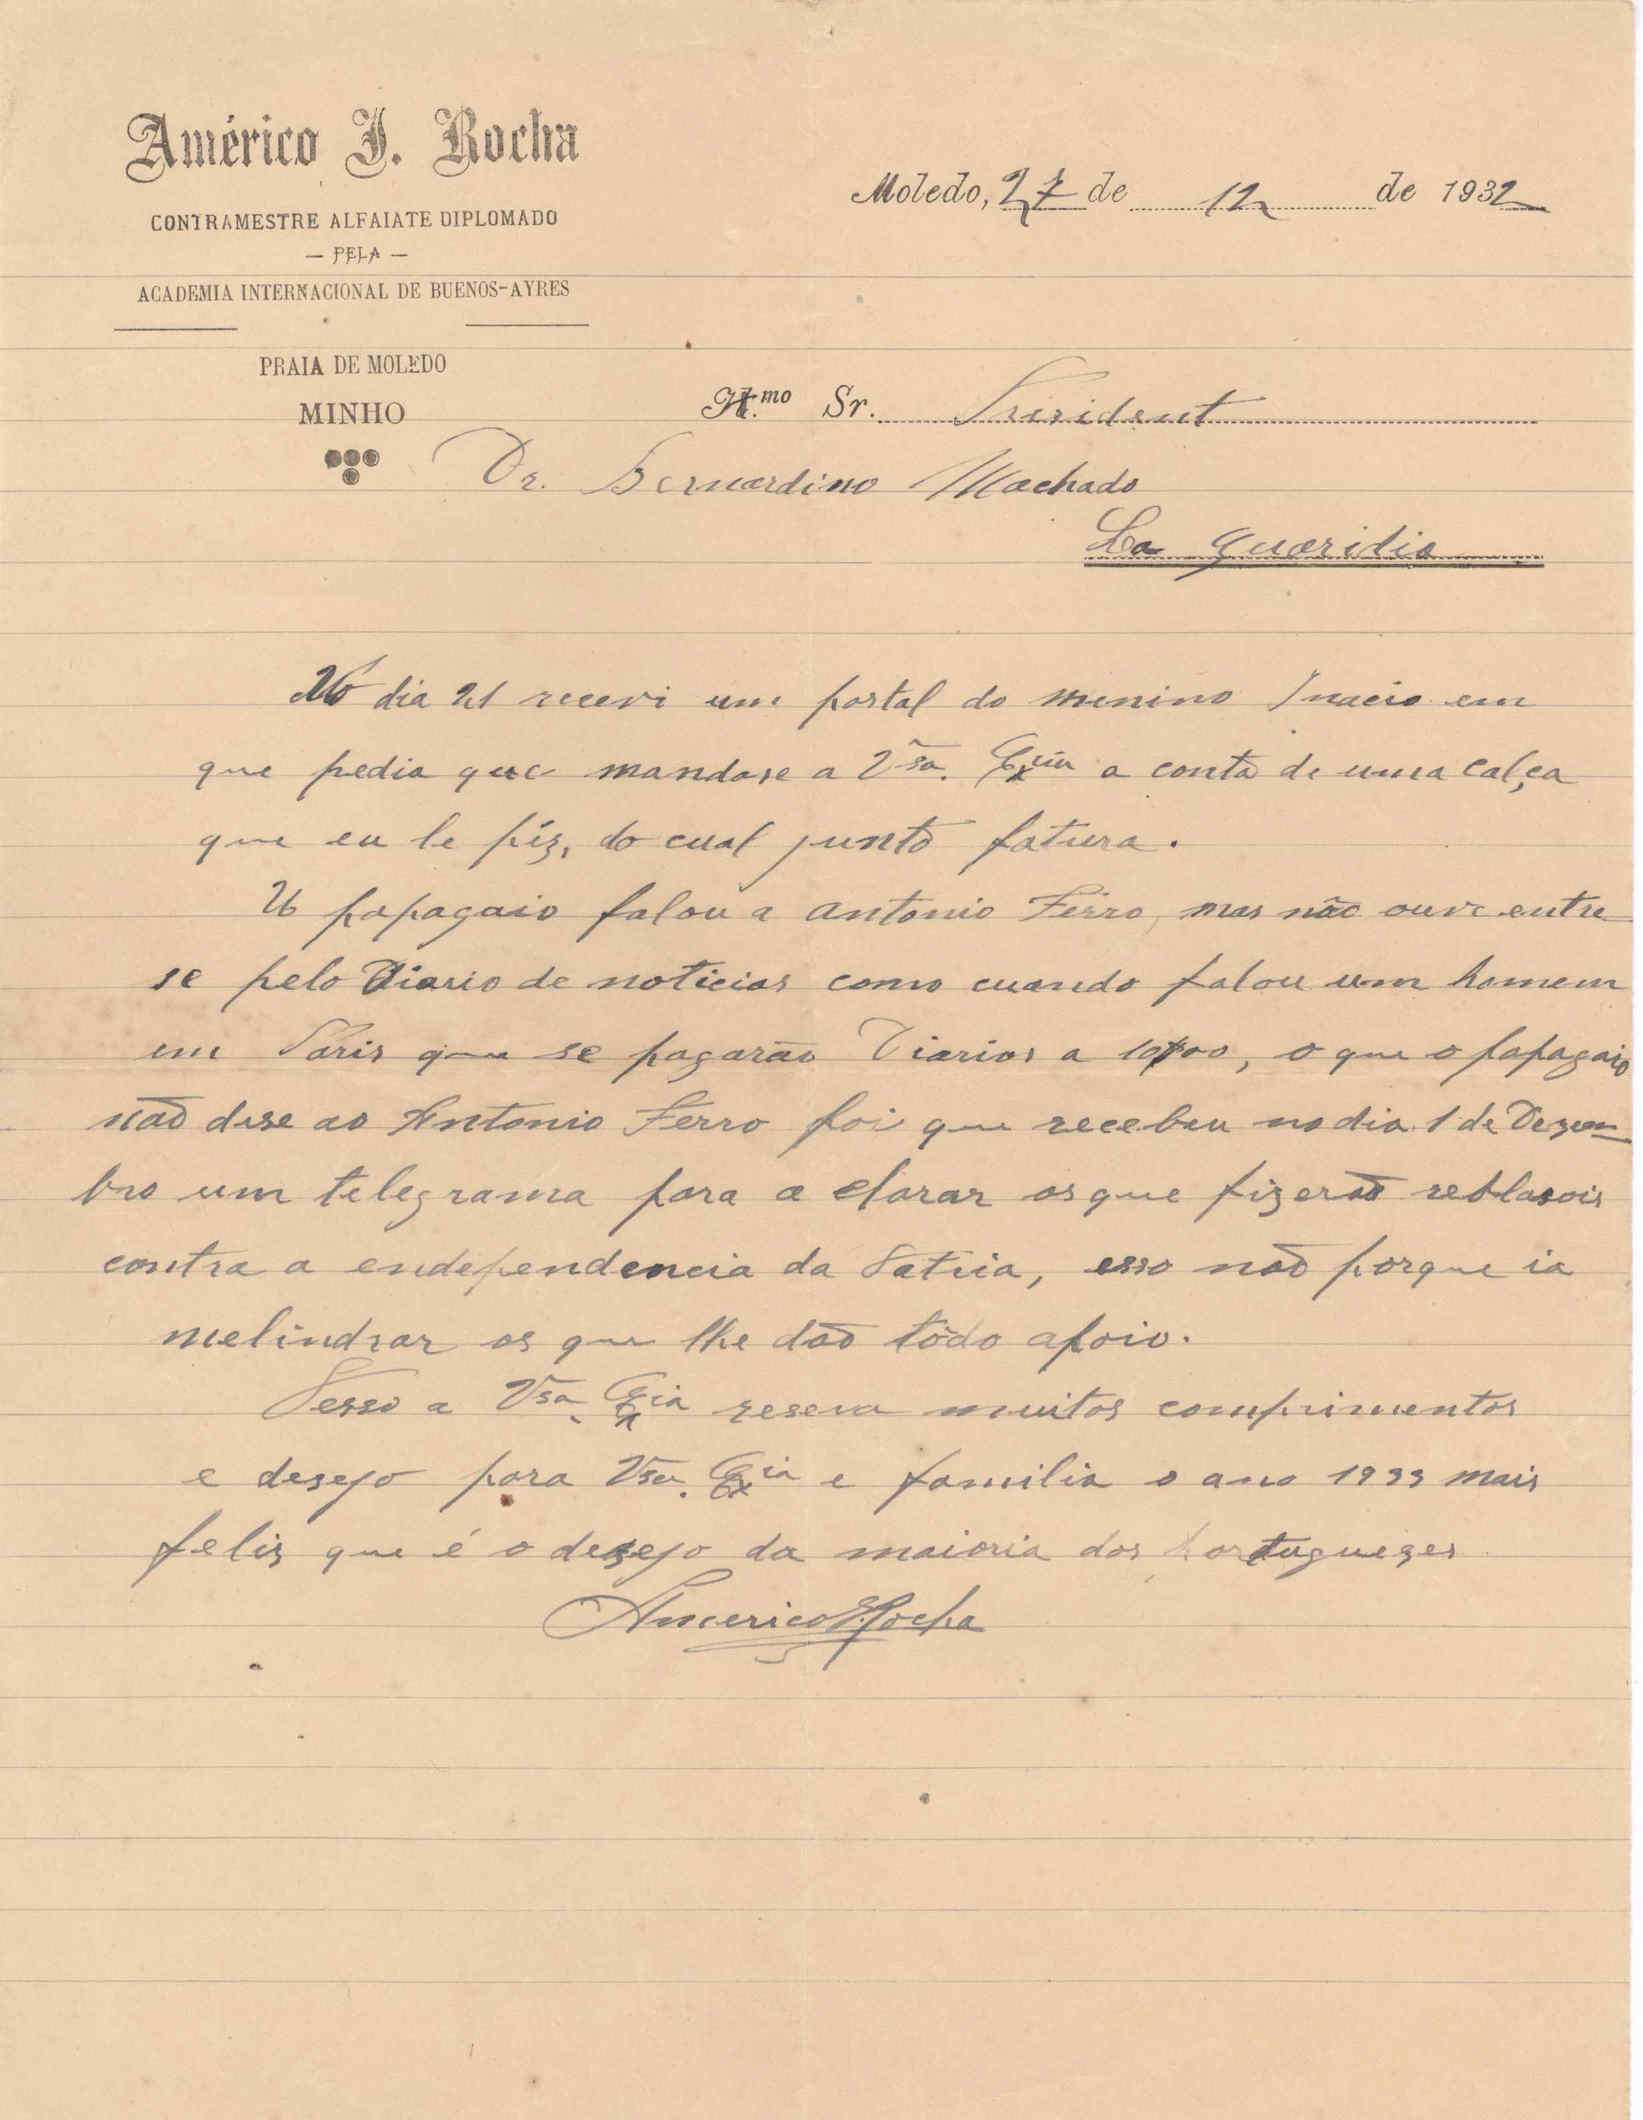 Américo J. Rocha
CONTRAMESTRE ALFAIATE DIPLOMADO
— PELA —
ACADEMIA INTERNACIONAL DE BUENOS-AYRES
PRAIA DE MOLEDO
MINHO
Moledo, 27 de 12 de 1932
Il.mo Sr. President
Dr. Bernardino Machado
La Guaridia
No dia 21 recevi um postal do menino Inacio em
que pedia que mandase a Vsa. Excia a conta de uma calça
que eu le fiz, do cual junto fatura.
O papagaio falou a Antonio Ferro, mas não ouve entre
se pelo Diario de noticias como cuando falou um homem
em Paris que se pagarão Diarios a 10$00, o que o papagaio
não dise ao Antonio Ferro foi que recebeu no dia 1 de Dezem
bro um telegrama para a clarar os que fizerão
contra a endependencia da Patria, esso não porque ia
melindrar os que lhe dão tôdo apoio.
Pesso a Vsa. Exia reseva muitos comprimentos
e desejo para Vsa. Exia e familia o ano 1933 mais
felis que é o desejo da maioria dos portugueses
Americo J. Rocha